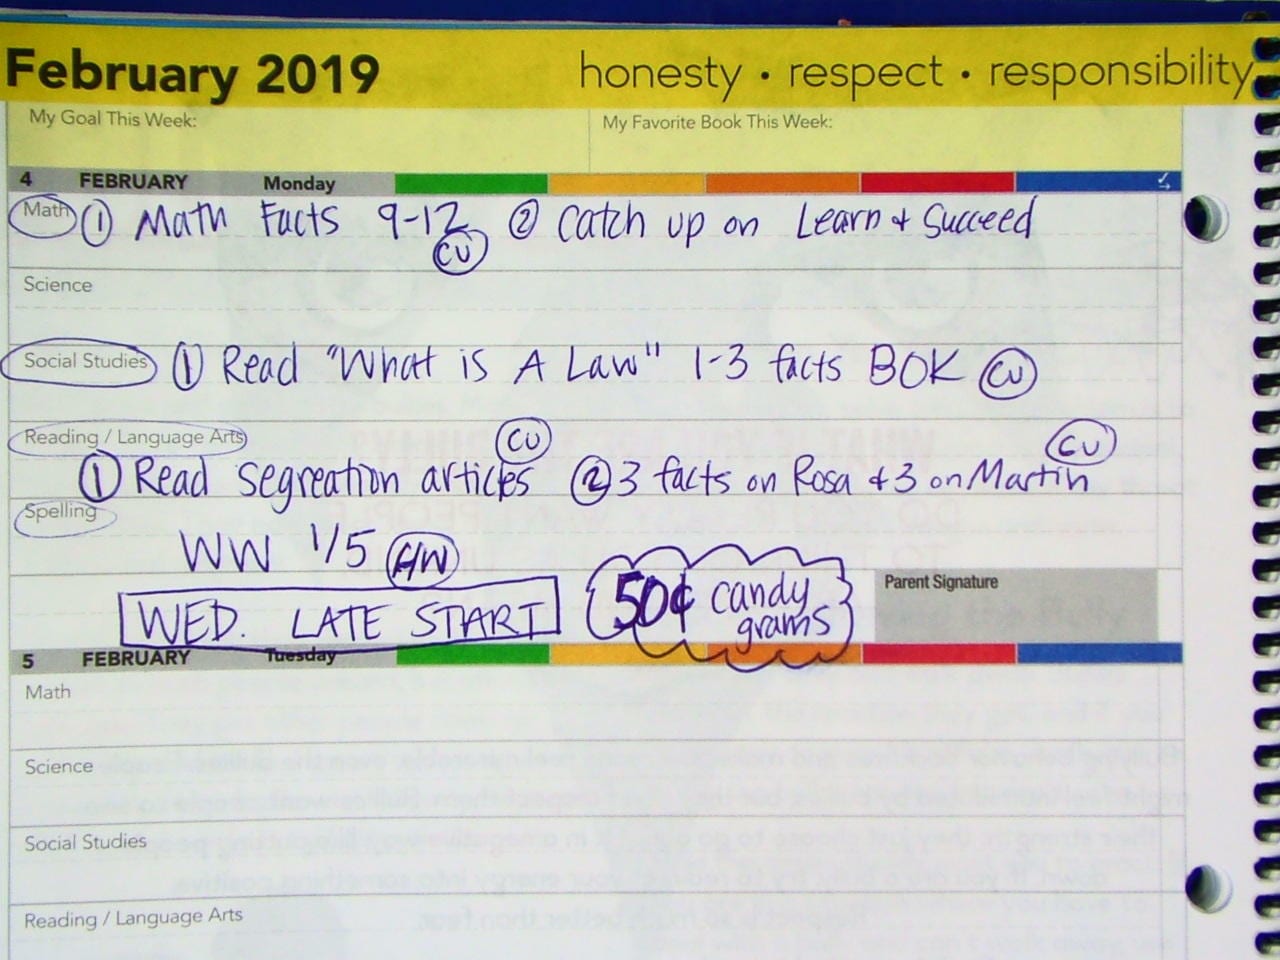 February 2019 honesty • respect • responsibility
My Goal This Week: My Favorite Book This Week:
4 FEBRUARY Monday
Math ① Math Facts 9-12 ② catch up on Learn + Succeed
CU
Science
Social Studies ① Read "What is A Law" 1-3 facts BOK CU
Reading / Language Arts CU CU
① Read segreation articles ② 3 facts on Rosa + 3 on Martin
Spelling
WW 1/5 HW
WED. LATE START 50¢ candy grams
Parent Signature
5 FEBRUARY Tuesday
Math
Science
Social Studies
Reading / Language Arts